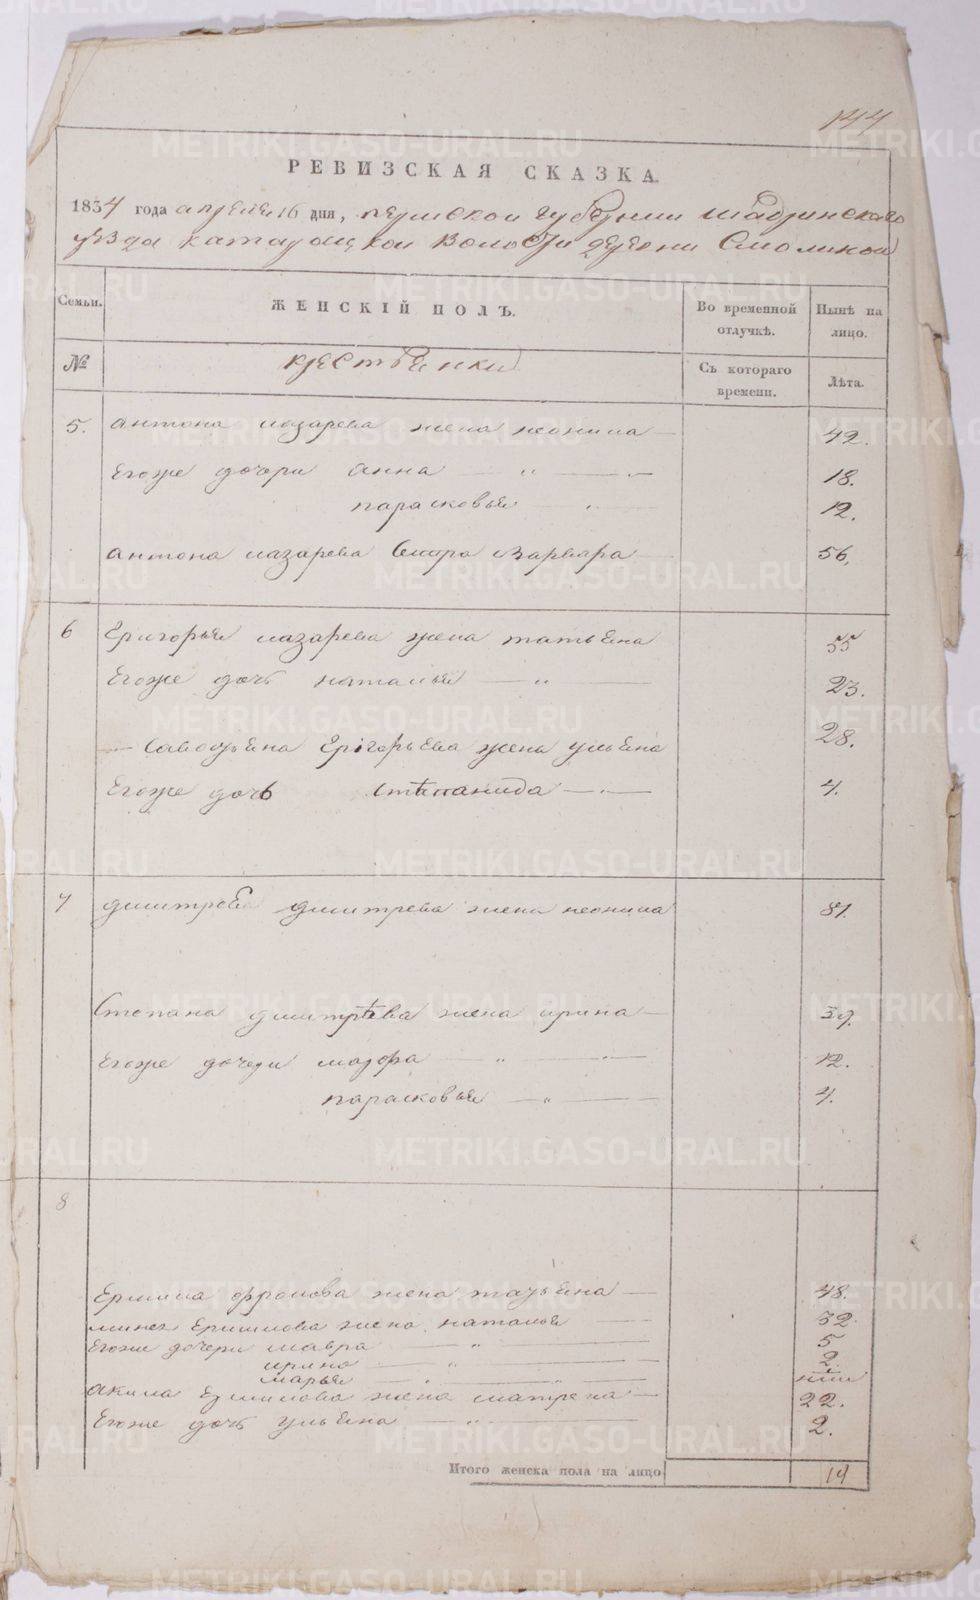 144
РЕВИЗСКАЯ СКАЗКА.
1834 года апреля 16 дня, пермской губернии шадринскаго
уезда катайской волости деревни Смолиной
Семьи. ЖЕНСКІЙ ПОЛЪ. Во временной отлучкѣ. Нынѣ на лицо.
№ крестьянки Съ котораго времени. Лѣта.
5. антона лазарева жена неонила 42.
Егоже дочери анна 18.
парасковья 12.
антона лазарева сестра варвара 56.
6 Григорья лазарева жена татьяна 55
Егоже дочь наталья 23.
Григорьева жена ульяна 28.
Егоже дочь стѣпанида 4.
7 дмитрева жена неонила 81.
Степана дмитрѣева жена ирина 39.
Егоже дочери 12.
парасковья 4.
8
Ермила фролова жена татьяна 48.
Ермилова жена наталья 32.
Егоже дочери мавра 5
ирина 2.
марья
акима Ермилова жена матрена 22.
Егоже дочь ульяна 2.
Итого женска пола на лицо 19
METRIKI.GASO-URAL.RU